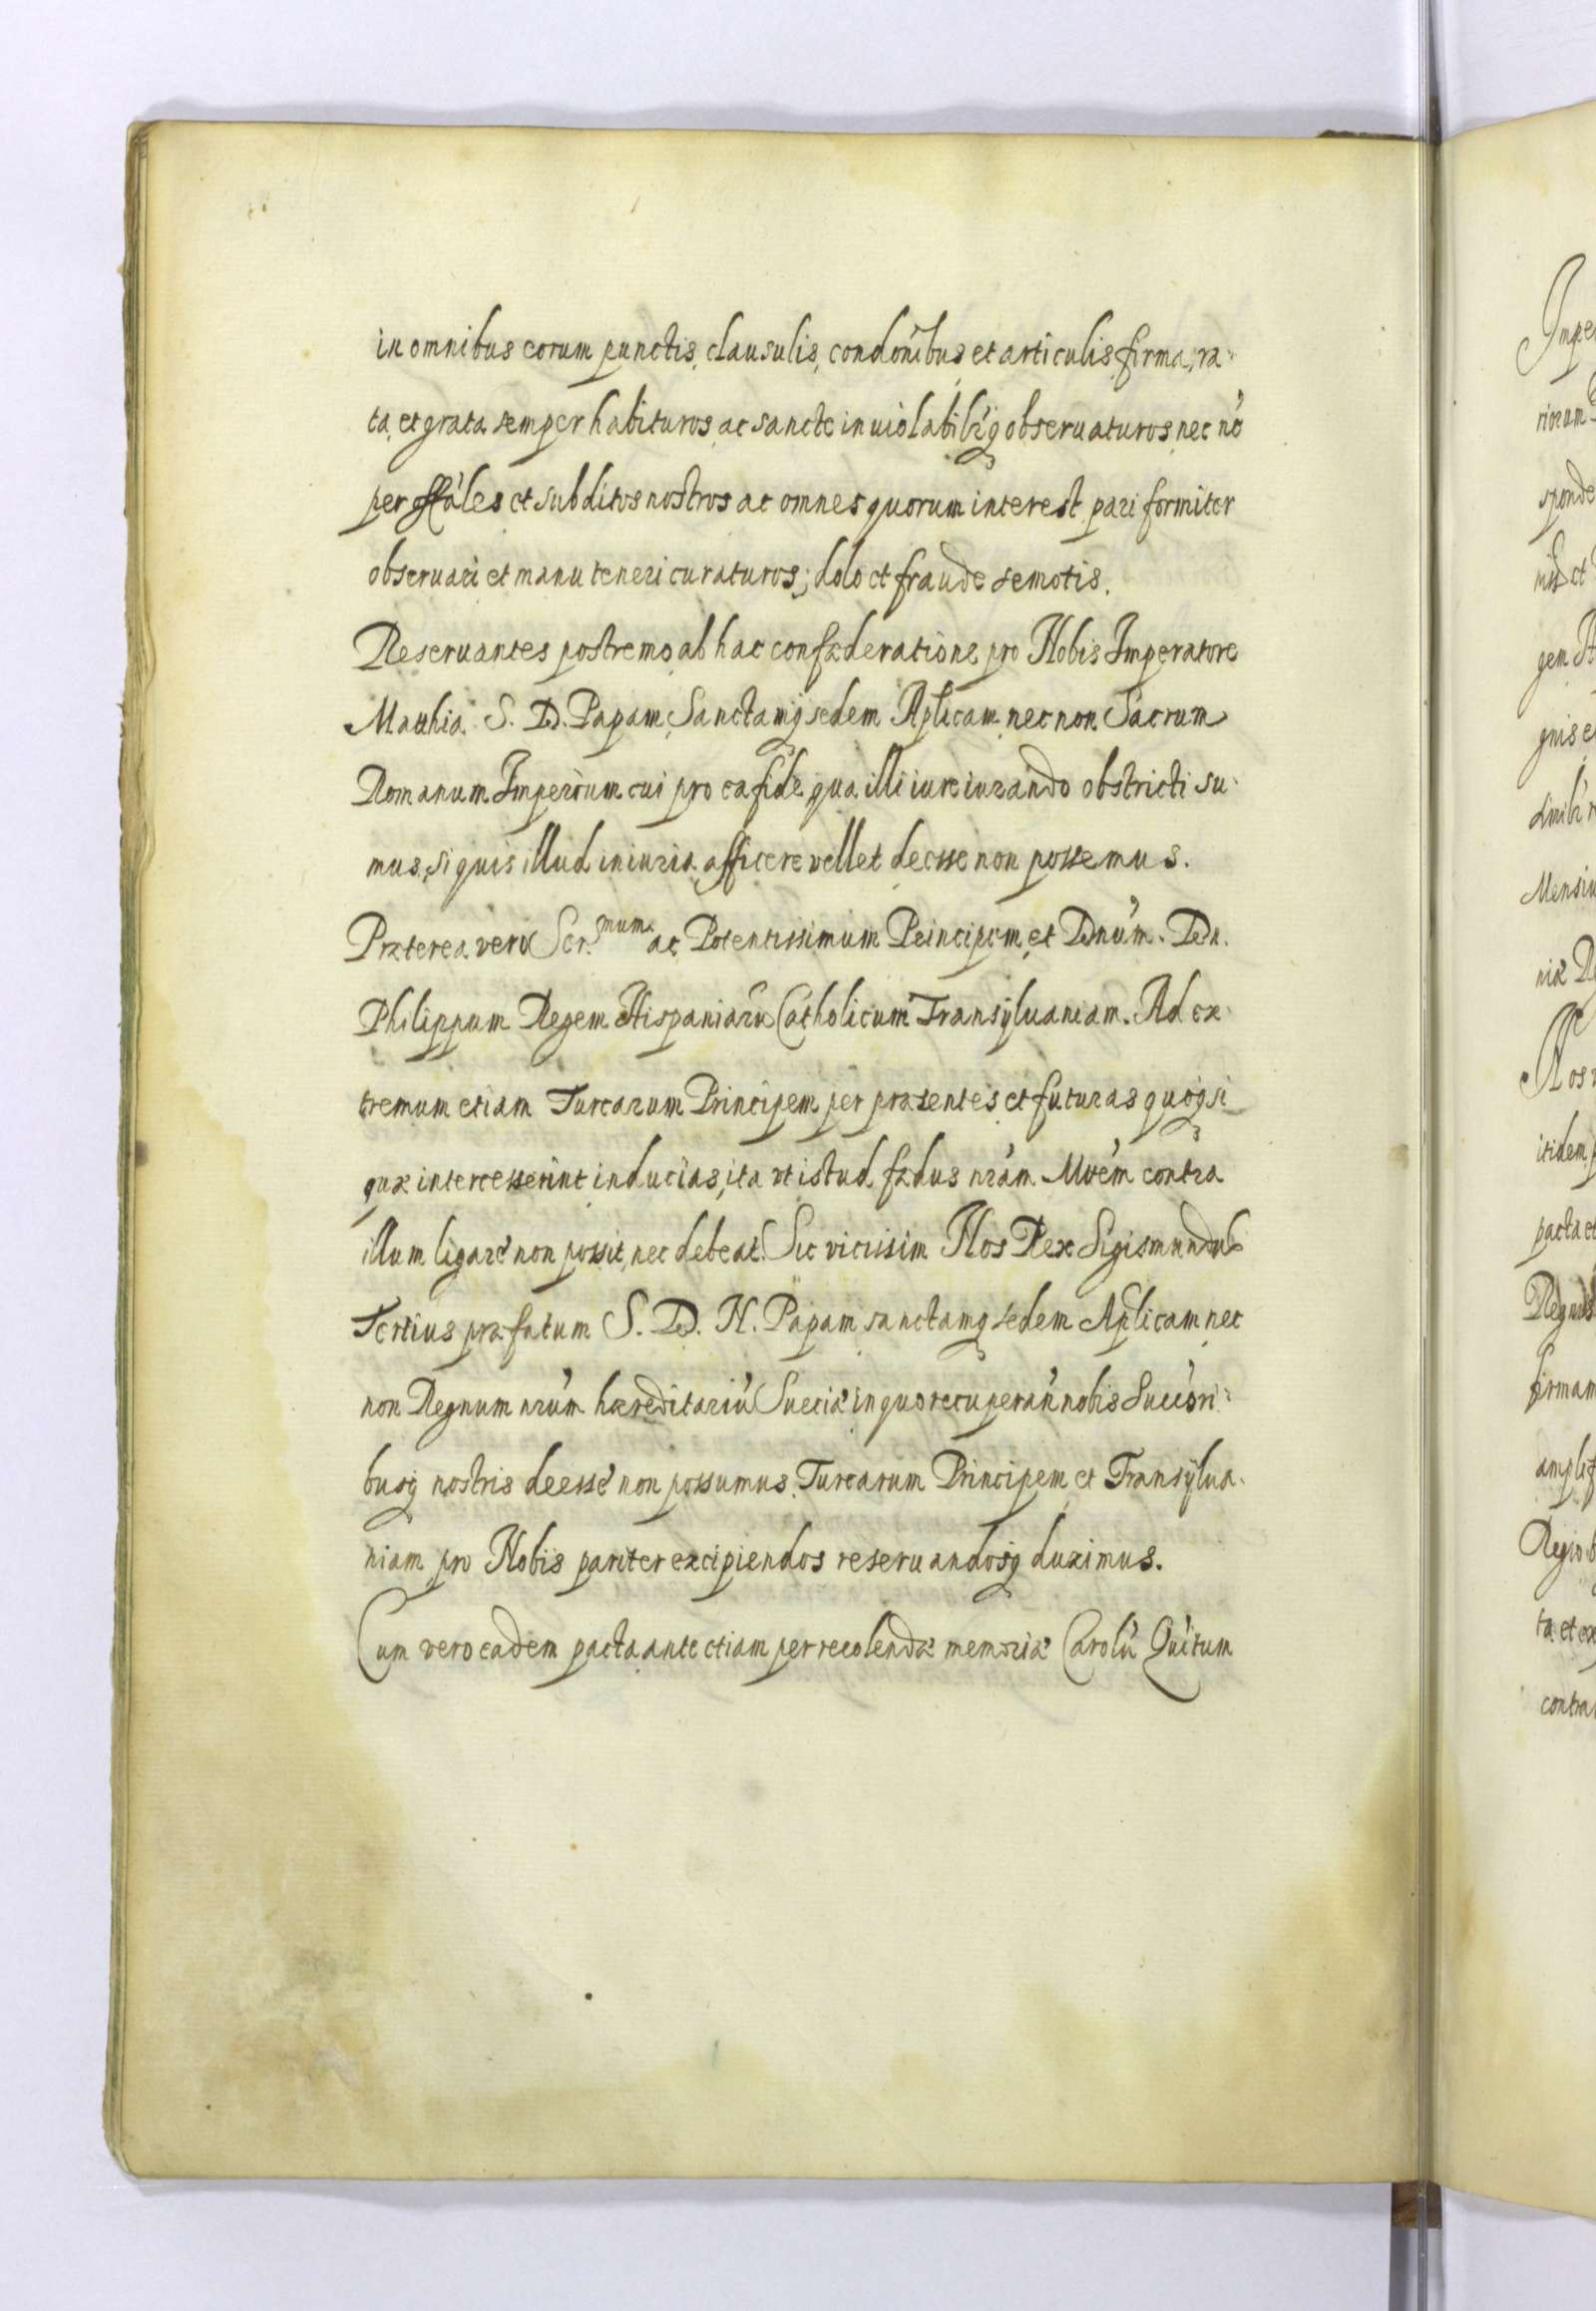 in omnibus eorum punctis, clausulis, condõnibus et articulis firma, ra-
ta, et grata semper habituros, ac sancte inuiolabilr̃q₃ obseruaturos, nec nõ
per offãles et subditos nostros ac omnes quorum interest, pariformiter
obseruari et manuteneri curaturos; dolo et fraude semotis.
Reseruantes postremo ab hac confæderatione, pro Nobis Imperatore
Matthia. S. D. Papam, Sanctamq₃ sedem Aplicam, nec non Sacrum
Romanum Imperium cui pro ea fide, qua illi iureiurando obstricti su-
mus, si quis illud iniuria afficere vellet deesse non possemus.
Præterea vero Ser.mum ac Potentissimum Principem, et Dnũm. Dn.
Philippum Regem Hispaniarũ Catholicum Transyluaniam. Ad ex-
tremum etiam Turcarum Principem per præsentes, et futuras quoq₃ si
quæ intercesserint inducias, ita vt istud fædus nrãm Mtẽm contra
illum ligare non possit, nec debeat. Sic vicissim Nos Rex Sigismundus
Tertius præfatum S. D. N. Papam, sanctamq₃ sedem Aplicam, nec
non Regnum nrũm hæreditariũ Sueciæ in quo recuperañ nobis Succõri-
busq₃ nostris deesse non possumus, Turcarum Principem, et Transylua-
niam pro Nobis pariter excipiendos reseruandosq₃ duximus.
Cum vero eadem pacta ante etiam per recolendæ memoriæ Carolũ Quĩtum
Impe
riorum
sponde
mus et
gem
gnis e
dinib
Mensiu
niæ
Nos
itidem
pacta et
Regnis
firmam
ampli
Regio
ta et ex
contra